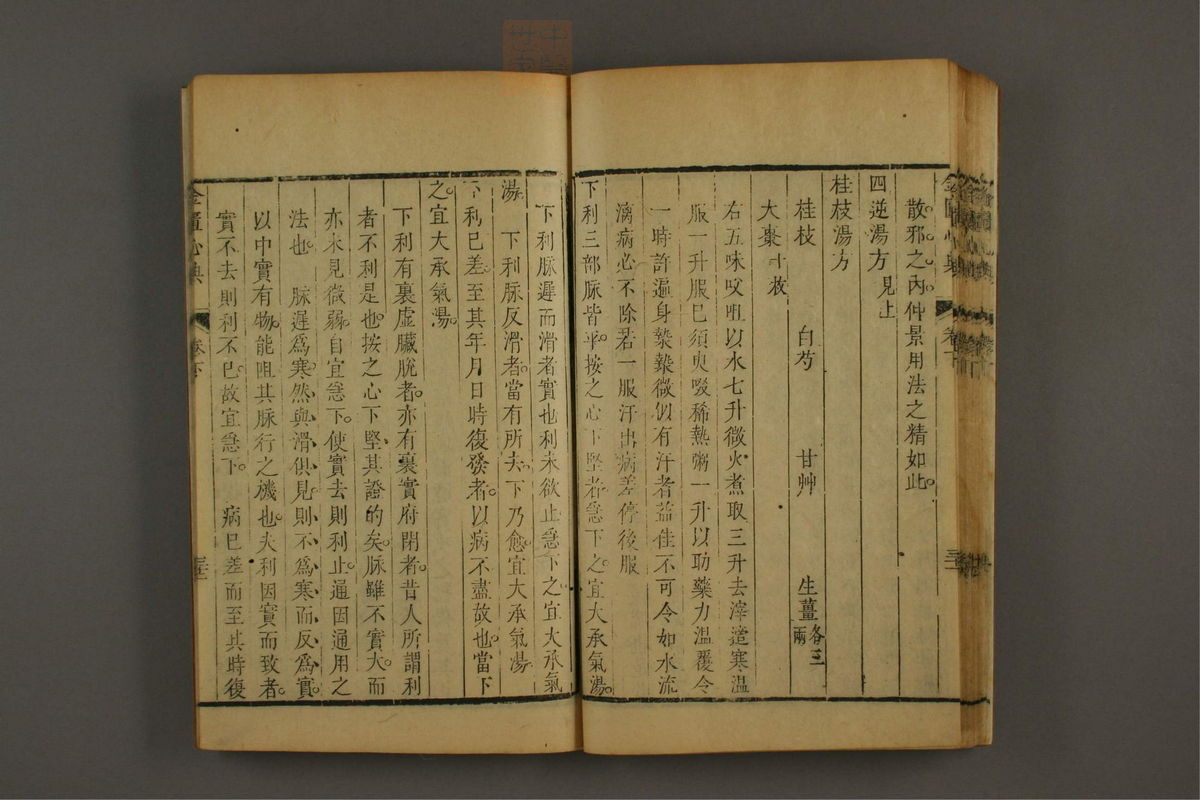 散邪之內仲景用法之精如此。
四逆湯方見上
桂枝湯方
桂枝 白芍 甘艸 生薑各三兩
大棗十枚
右五味㕮咀以水七升微火煮取三升去滓適寒溫
服一升服巳須臾啜稀熱粥一升以助藥力溫覆令
一時許遍身漐漐微似有汗者益佳不可令如水流
漓病必不除若一服汗出病差停後服
下利三部脉皆平。按之心下堅者。急下之。宜大承氣湯。
下利脉遲而滑者實也利未欲止急下之宜大承氣
湯。 下利脉反滑者。當有所去。下乃愈宜大承氣湯
下利巳差。至其年月日時復發者。以病不盡故也。當下
之。宜大承氣湯。
下利有裏虛臟脫者。亦有裏實府閉者。昔人所謂利
者不利是也。按之心下堅其證的矣。脉雖不實大。而
亦未見微弱。自宜急下。使實去則利止。通因通用之
法也。 脉遲爲寒。然與滑俱見。則不爲寒而反爲實。
以中實有物。能阻其脉行之機也。夫利因實而致者。
實不去則利不巳。故宜急下。 病巳差而至其時復
金匱心典 卷下